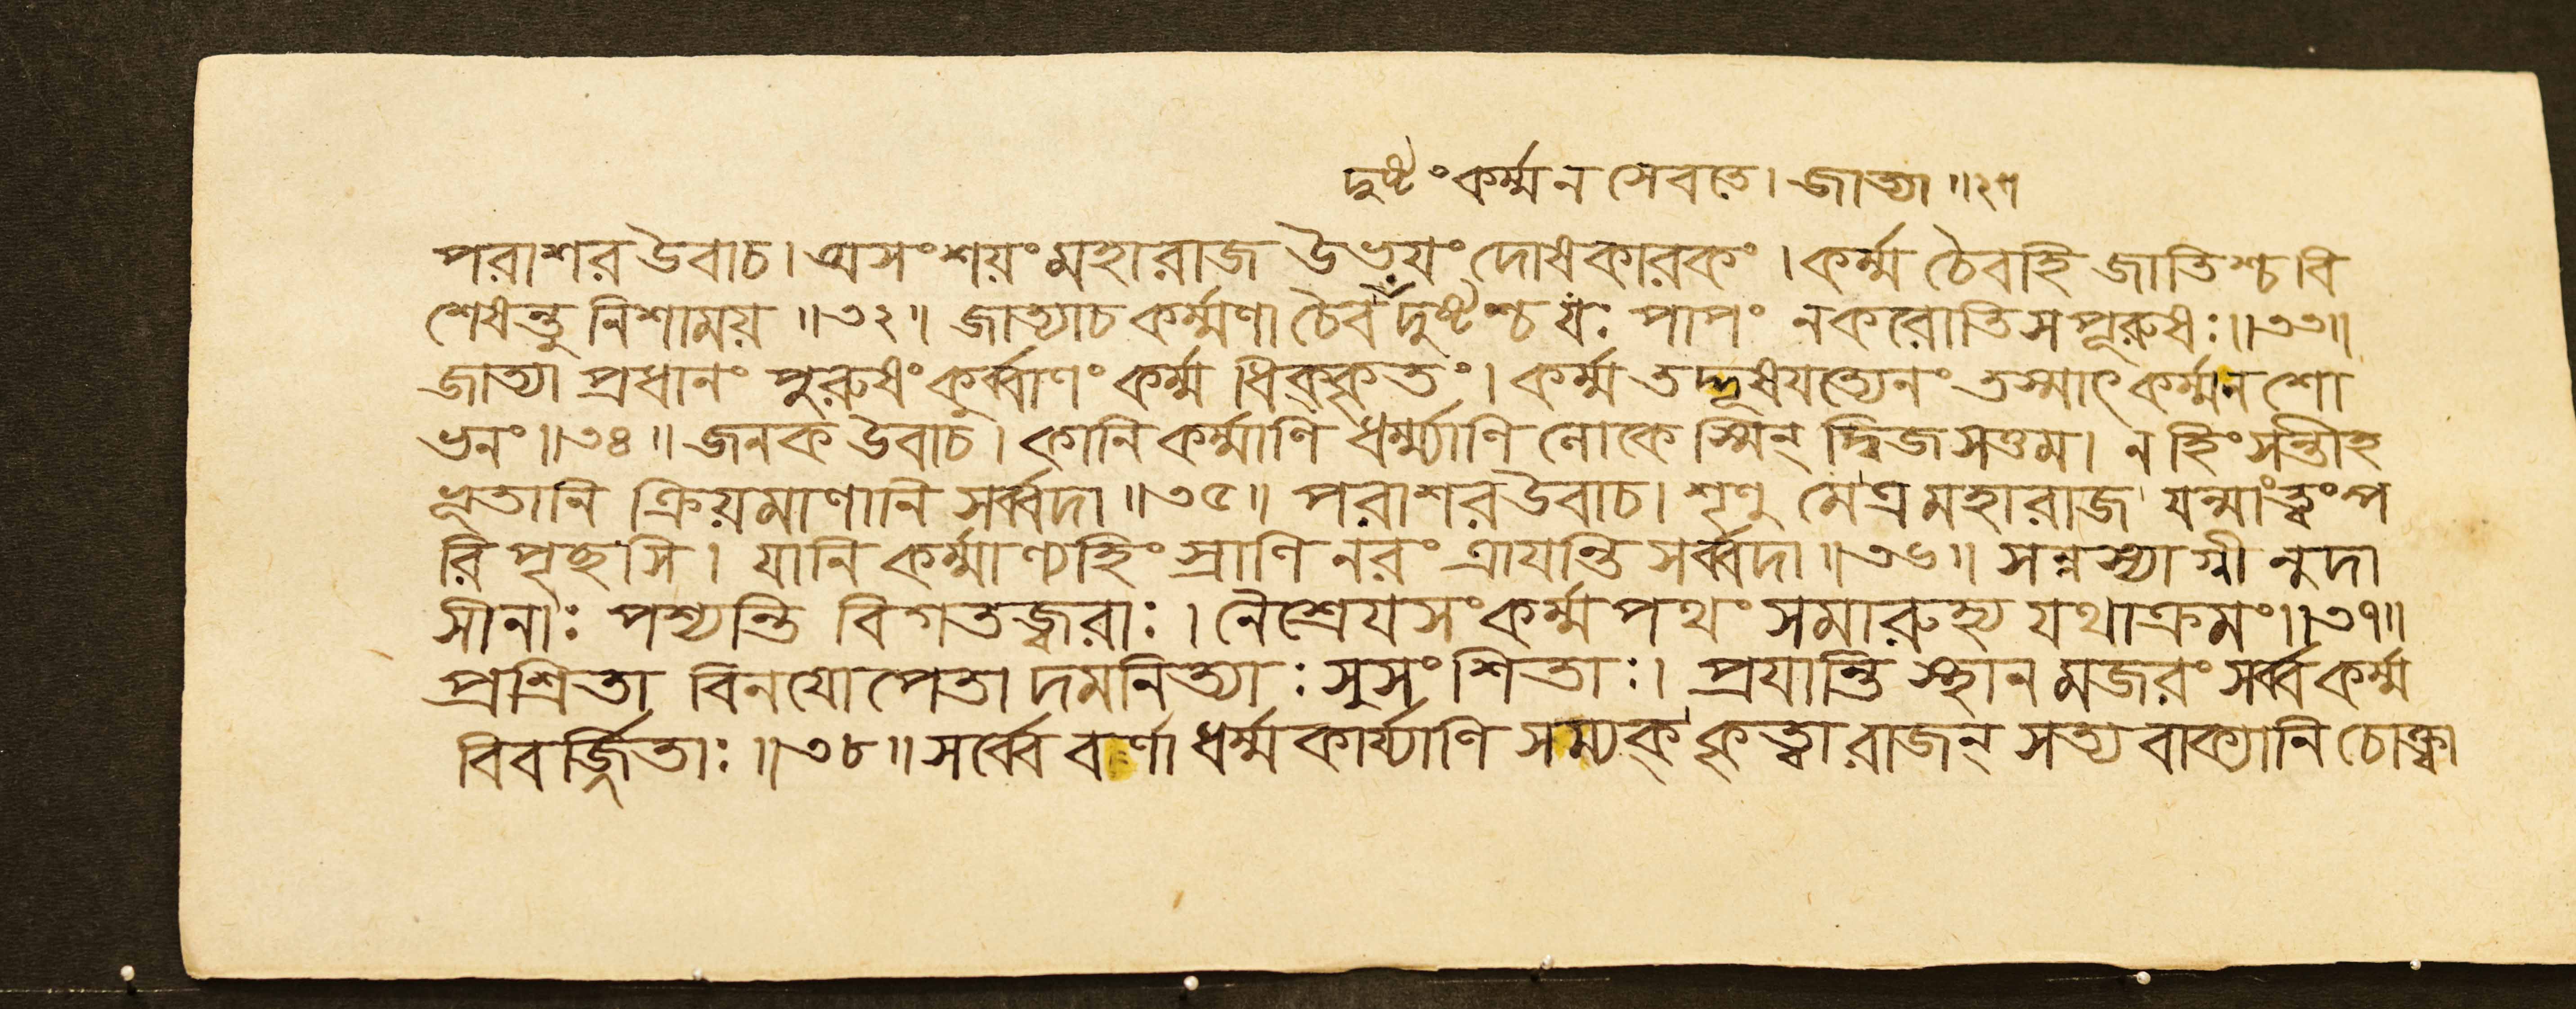 দুষ্টং কর্ম্ম ন সেবতে। জাত্যা ॥২৭
পরাশর উবাচ। অসংশয়ং মহারাজ উভয়ং দোষকারকং। কর্ম্ম চৈবহি জাতিশ্চ বি
শেষন্তু নিশাময় ॥৩২॥ জাত্যাচ কর্ম্মণা চৈব দুষ্টশ্চ যঃ পাপং নকরোতি স পূরুষঃ॥৩৩॥
জাত্যা প্রধানং পুরুষং কুর্ব্বাণং কর্ম্ম ধিক্কৃতং। কর্ম্ম তদ্দূষয়ত্যেনং তস্মাৎ কর্ম্ম ন শো
ভনং॥৩৪॥ জনক উবাচ। কানি কর্ম্মাণি ধর্ম্ম্যাণি লোকেস্মিন্ দ্বিজসত্তম। ন হিংসন্তীহ
ভূতানি ক্রিয়মাণানি সর্ব্বদা ॥৩৫॥ পরাশর উবাচ। শৃণু মেত্র মহারাজ যন্মাং ত্বং প
রিপৃছসি। যানি কর্ম্মাণ্যহিংস্রাণি নরং ত্রায়ন্তি সর্ব্বদা ॥৩৬॥ সন্নস্যাগ্নী নুদা
সীনাঃ পশ্যন্তি বিগতজ্বরাঃ। নৈশ্রেয়সং কর্ম্মপথং সমারুহ্য যথাক্রমং॥৩৭॥
প্রশ্রিতা বিনয়োপেতা দমনিত্যাঃ সুসংশিতাঃ। প্রযান্তি স্থানমজরং সর্ব্বকর্ম্ম
বিবর্জ্জিতাঃ ॥৩৮॥ সর্ব্বে বর্ণা ধর্ম্মকার্য্যাণি সম্যক্ কৃত্বা রাজন্ সত্যবাক্যানি চোক্ত্বা